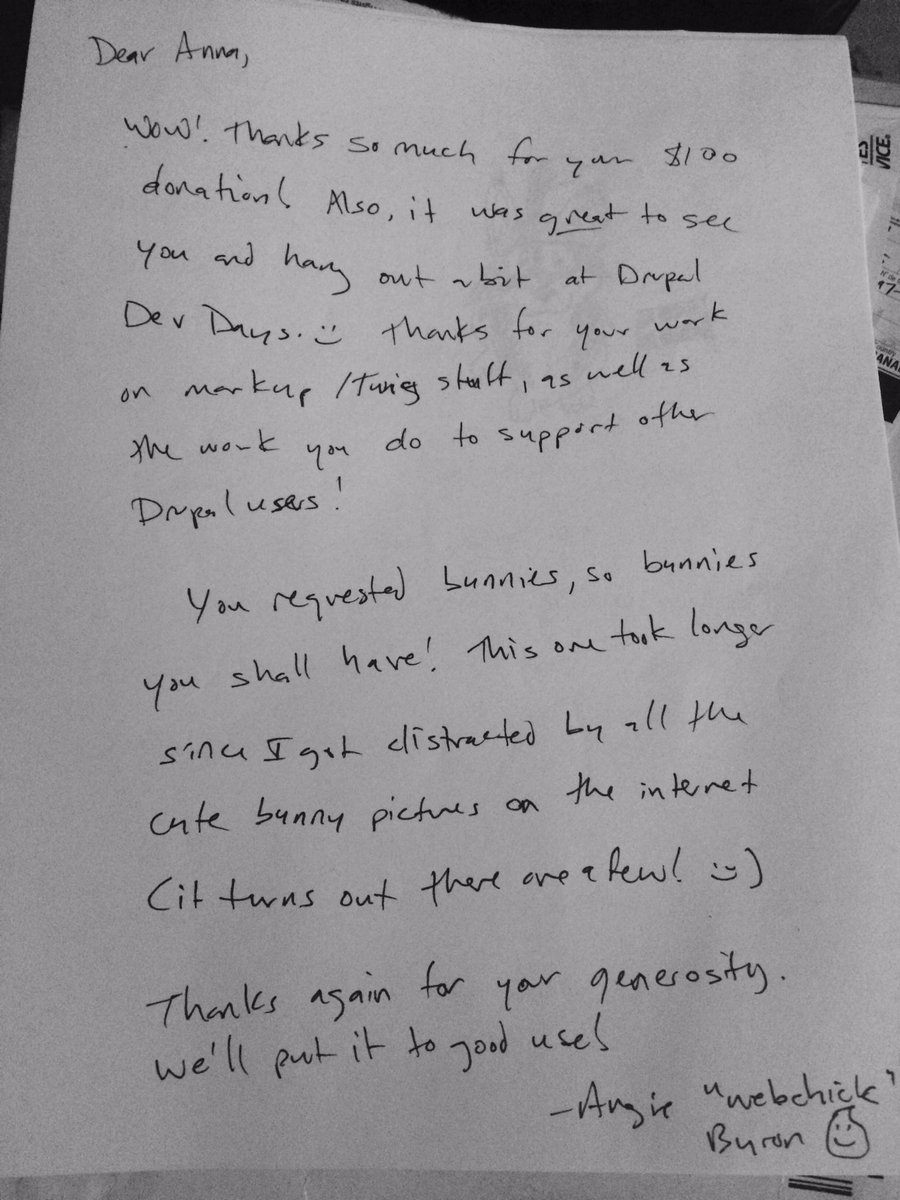 Dear Anna,
Wow! Thanks so much for your $100
donation! Also, it was great to see
you and hang out a bit at Drupal
Dev Days. :) Thanks for your work
on markup/twig stuff, as well as
the work you do to support other
Drupal users!
You requested bunnies, so bunnies
you shall have! This one took longer
since I got distracted by all the
cute bunny pictures on the internet
(it turns out there are a few! :))
Thanks again for your generosity.
We'll put it to good use!
-Angie "webchick"
Byron
VICE.